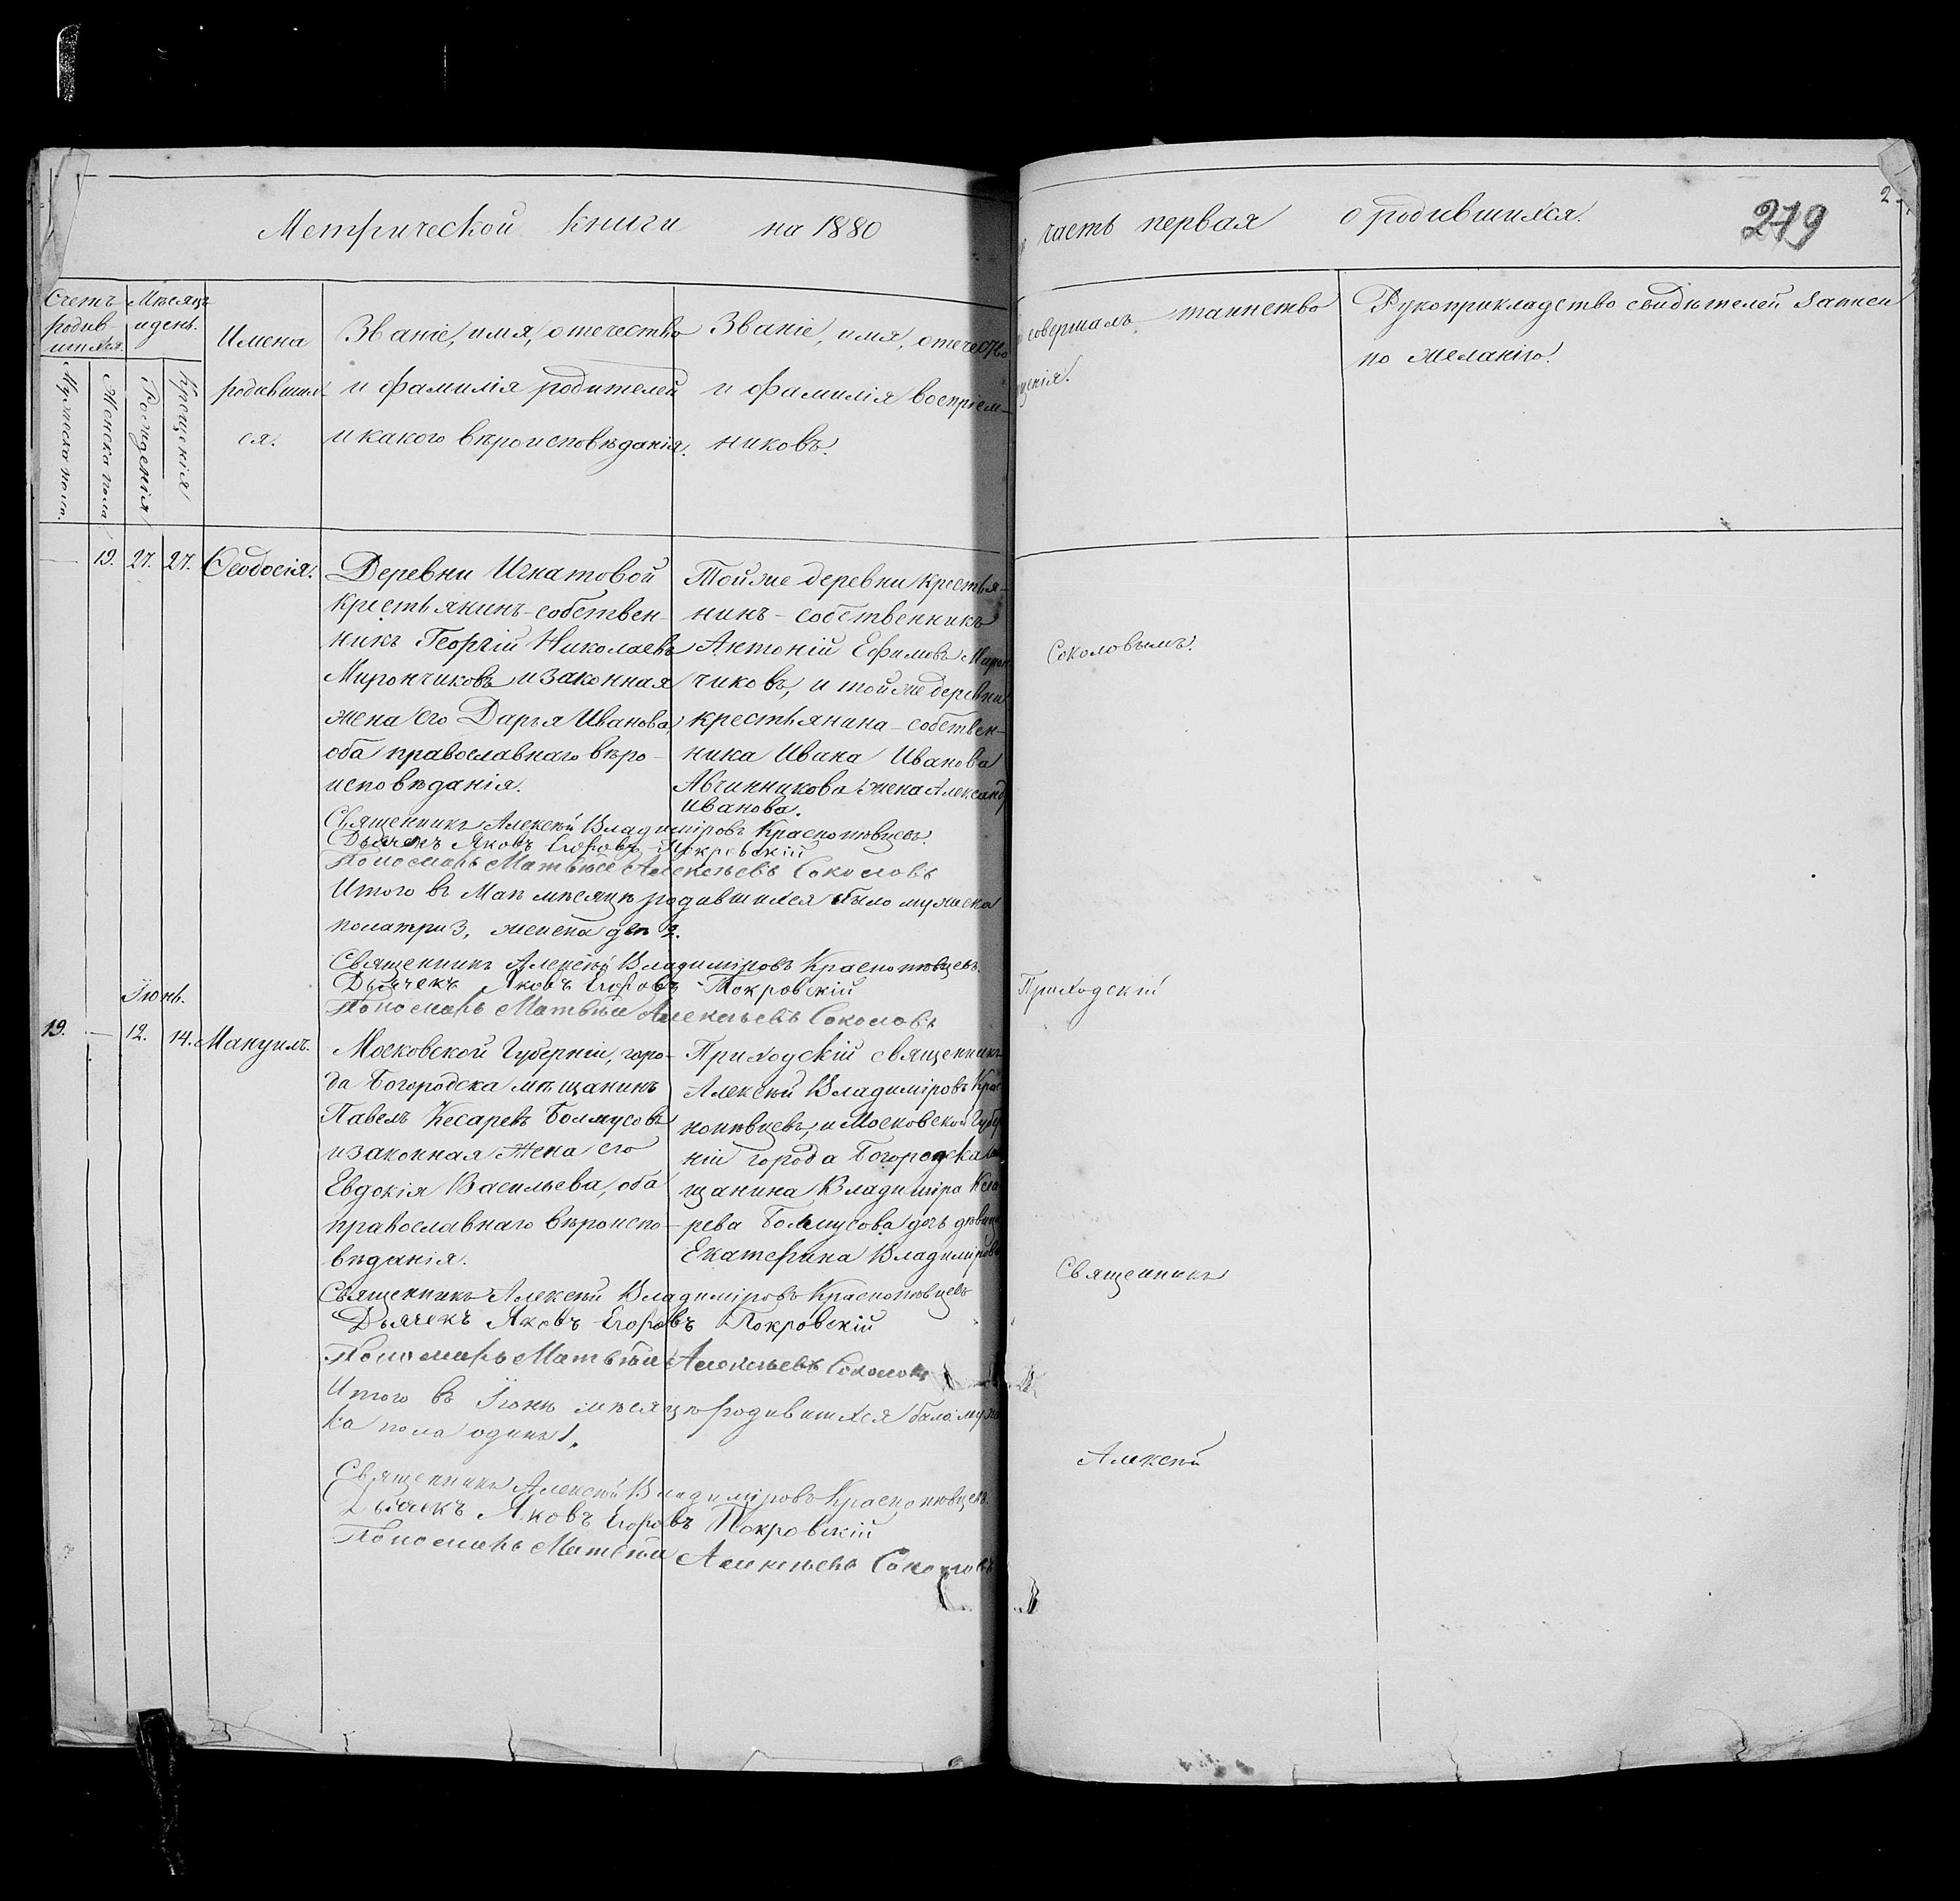 Метрической книги на 1880
часть первая о родившихся.
279
Счетъ родив-шихся.
Мѣсяцъ и день.
Мужеска пола.
Женска пола.
Рожденія
Крещенія
Имена
родивших-
ся.
Званіе, имя, отечество
и фамилія родителей
и какого вѣроисповѣданія.
Званіе, имя, отечество
и фамилія воспріем-
никовъ.
совершалъ таинство
щенія.
Рукоприкладство свидѣтелей записи
по желанію.
19. 27. 27. Ѳеодосія.
Деревни Игнатовой
крестьянинъ-собствен-
никъ Георгій Николаевъ
Мирончиковъ и законная
жена его Дарья Иванова,
оба православнаго вѣро-
исповѣданія.
Той же деревни крестья-
нинъ-собственникъ
Антоній Ефимовъ Мирон
чиковъ, и той же деревни
крестьянина-собствен-
ника Ивана Иванова
Авчинникова жена Александ
Иванова.
Соколовымъ.
Священникъ Алексѣй Владиміровъ Краснопѣвцевъ.
Дьячекъ Яковъ Егоровъ Покровскій
Пономарь Матвѣй Алексѣевъ Соколовъ
Итого въ Маѣ мѣсяцѣ родившихся было мужска
пола три 3, женска двѣ 2.
Священникъ Алексѣй Владиміровъ Краснопѣвцевъ.
Дьячекъ Яковъ Егоровъ Покровскій
Пономарь Матвѣй Алексѣевъ Соколовъ
Іюнь.
19. — 12. 14. Мануилъ.
Московской Губерніи, горо-
да Богородска мѣщанинъ
Павелъ Кесаревъ Болмусовъ
и законная жена его
Евдокія Васильева, оба
православнаго вѣроиспо-
вѣданія.
Приходскій священникъ
Алексѣй Владиміровъ Крас
нопѣвцевъ, и Московской Губер
ніи города Богородска мѣ
щанина Владиміра Кеса
рева Болмусова дочь дѣвица
Екатерина Владимірова
Приходскій
Священникъ
Алексѣй
Священникъ Алексѣй Владиміровъ Краснопѣвцевъ
Дьячекъ Яковъ Егоровъ Покровскій
Пономарь Матвѣй Алексѣевъ Соколовъ
Итого въ Іюнѣ мѣсяцѣ родившихся было: мужс
ка пола одинъ 1.
Священникъ Алексѣй Владиміровъ Краснопѣвцевъ.
Дьячекъ Яковъ Егоровъ Покровскій
Пономарь Матвѣй Алексѣевъ Соколовъ